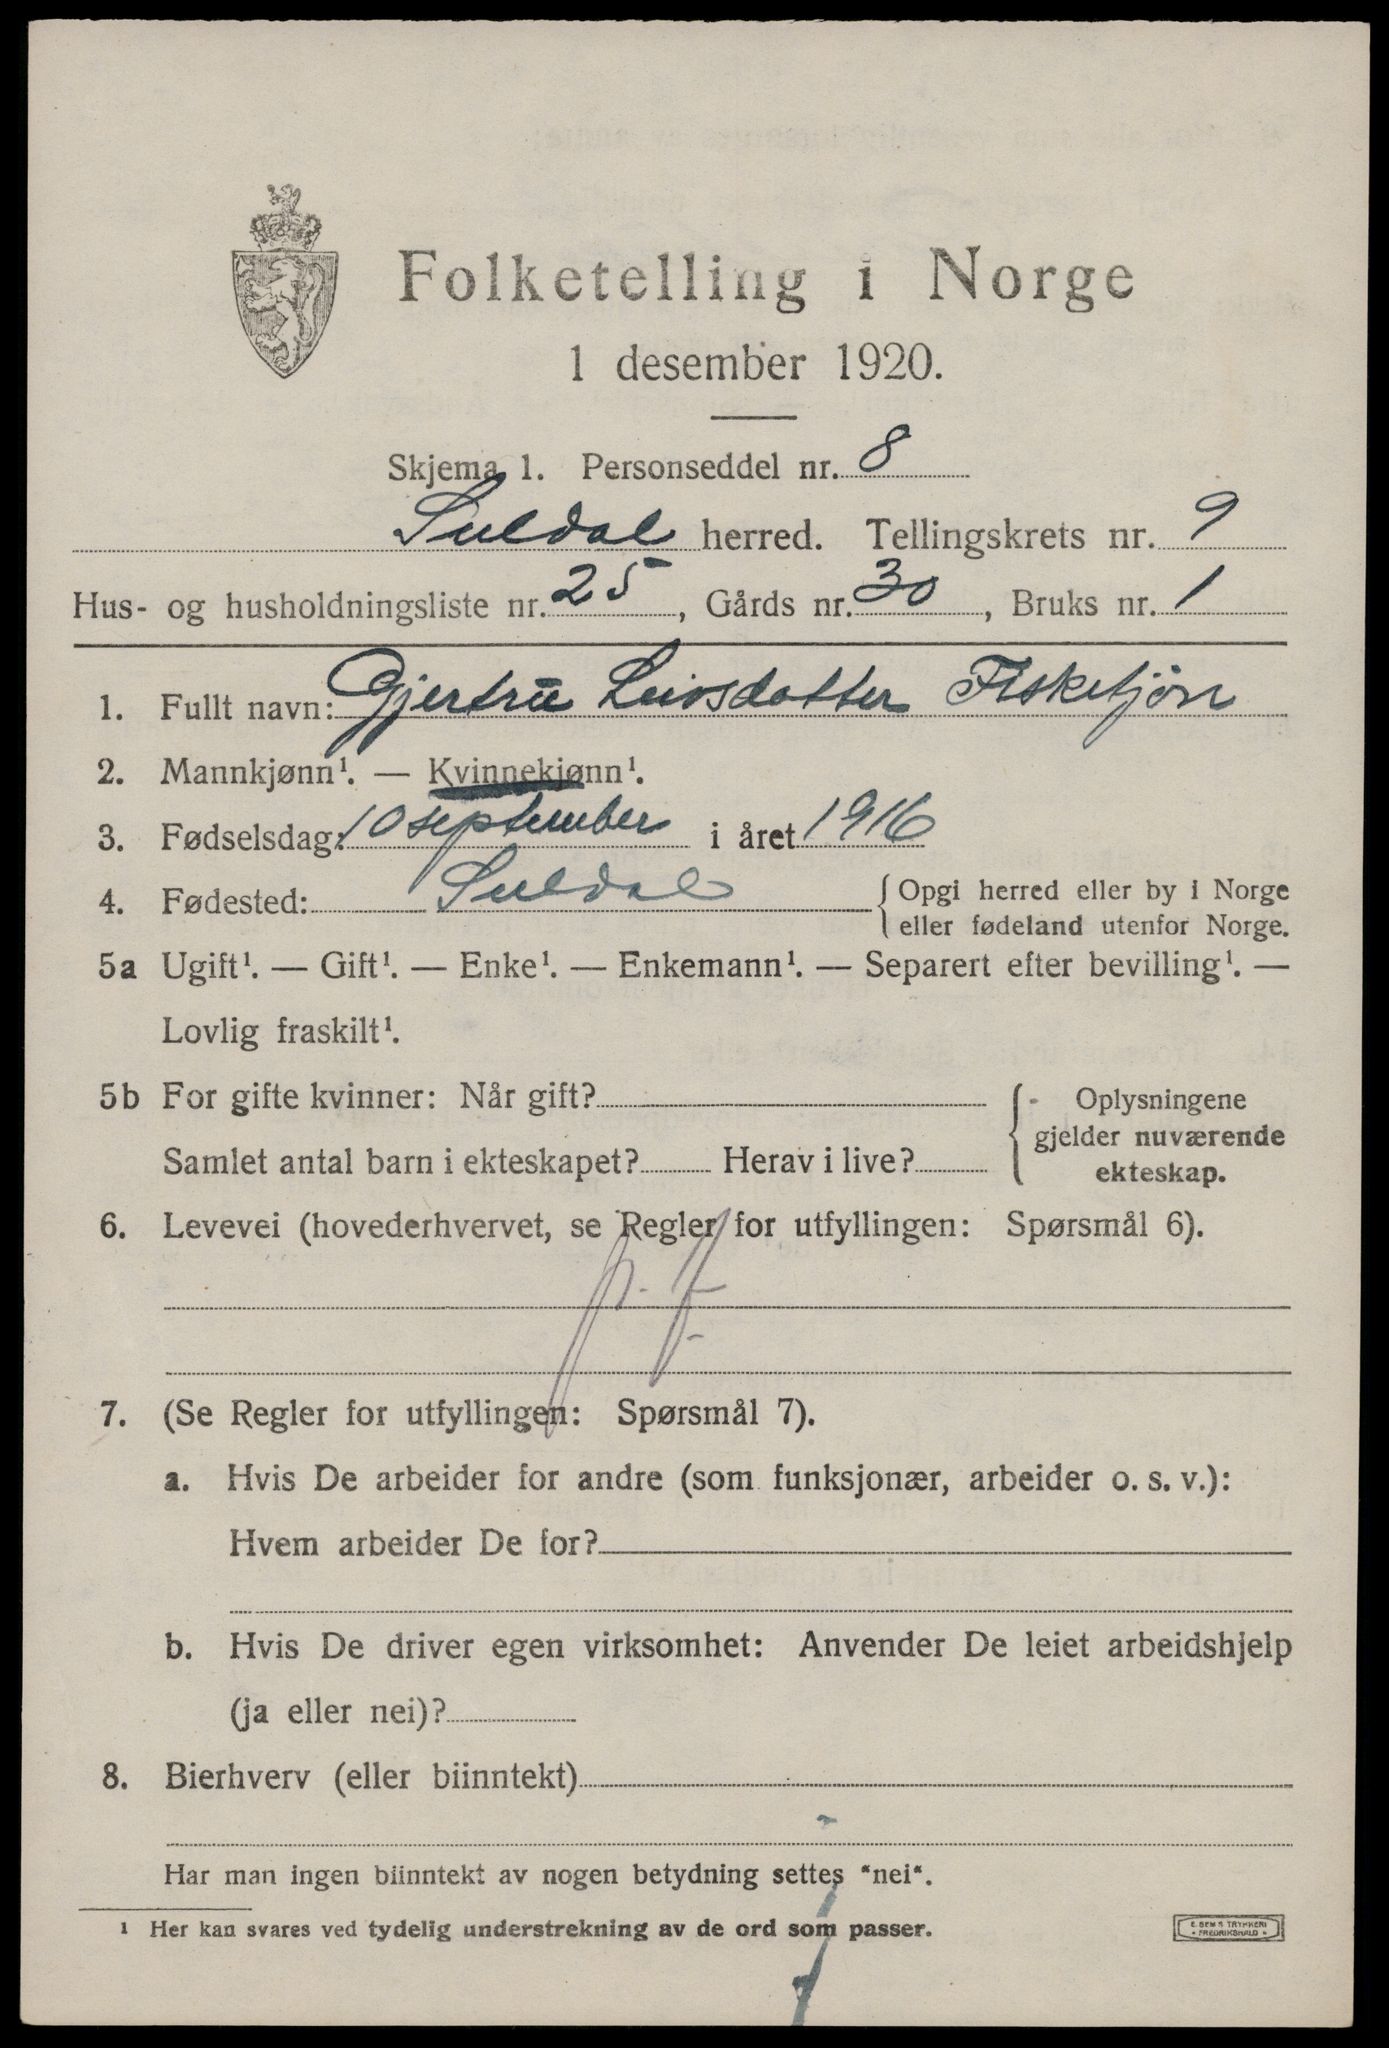 Folketelling i Norge
1 desember 1920.
Skjema 1. Personseddel nr. 8
Suldal herred. Tellingskrets nr. 9
Hus- og husholdningsliste nr. 25, Gårds nr. 30, Bruks nr. 1
1. Fullt navn: Gjertru Leivsdatter Fisketjön
2. Mannkjønn¹. — Kvinnekjønn¹.
3. Fødselsdag: 10 september i året 1916
4. Fødested: Suldal {Opgi herred eller by i Norge
eller fødeland utenfor Norge.
5a Ugift¹. — Gift¹. — Enke¹. — Enkemann¹. — Separert efter bevilling¹. —
Lovlig fraskilt¹.
5b For gifte kvinner: Når gift? { Oplysningene
gjelder nuværende
Samlet antal barn i ekteskapet? Herav i live? ekteskap.
6. Levevei (hovederhvervet, se Regler for utfyllingen: Spørsmål 6).
7. (Se Regler for utfyllingen: Spørsmål 7).
a. Hvis De arbeider for andre (som funksjonær, arbeider o. s. v.):
Hvem arbeider De for?
b. Hvis De driver egen virksomhet: Anvender De leiet arbeidshjelp
(ja eller nei)?
8. Bierhverv (eller biinntekt)
Har man ingen biinntekt av nogen betydning settes "nei".
¹ Her kan svares ved tydelig understrekning av de ord som passer.
E. SEM'S TRYKKERI
• FREDRIKSHALD •